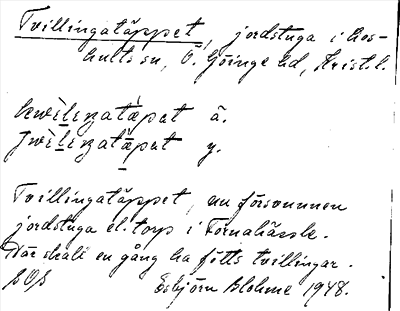 Tvillingatäppet, jordstuga i Los-
hults sn, Ö. Göinge hd, Krist. l.
twìlingatäpat ä.
twìlingatäpat y.
Tvillingatäppet, nu försvunnen
jordstuga el. torp i Tornahässle.
Där skall en gång ha fötts tvillingar.
SOS Esbjörn Blohmé 1948.